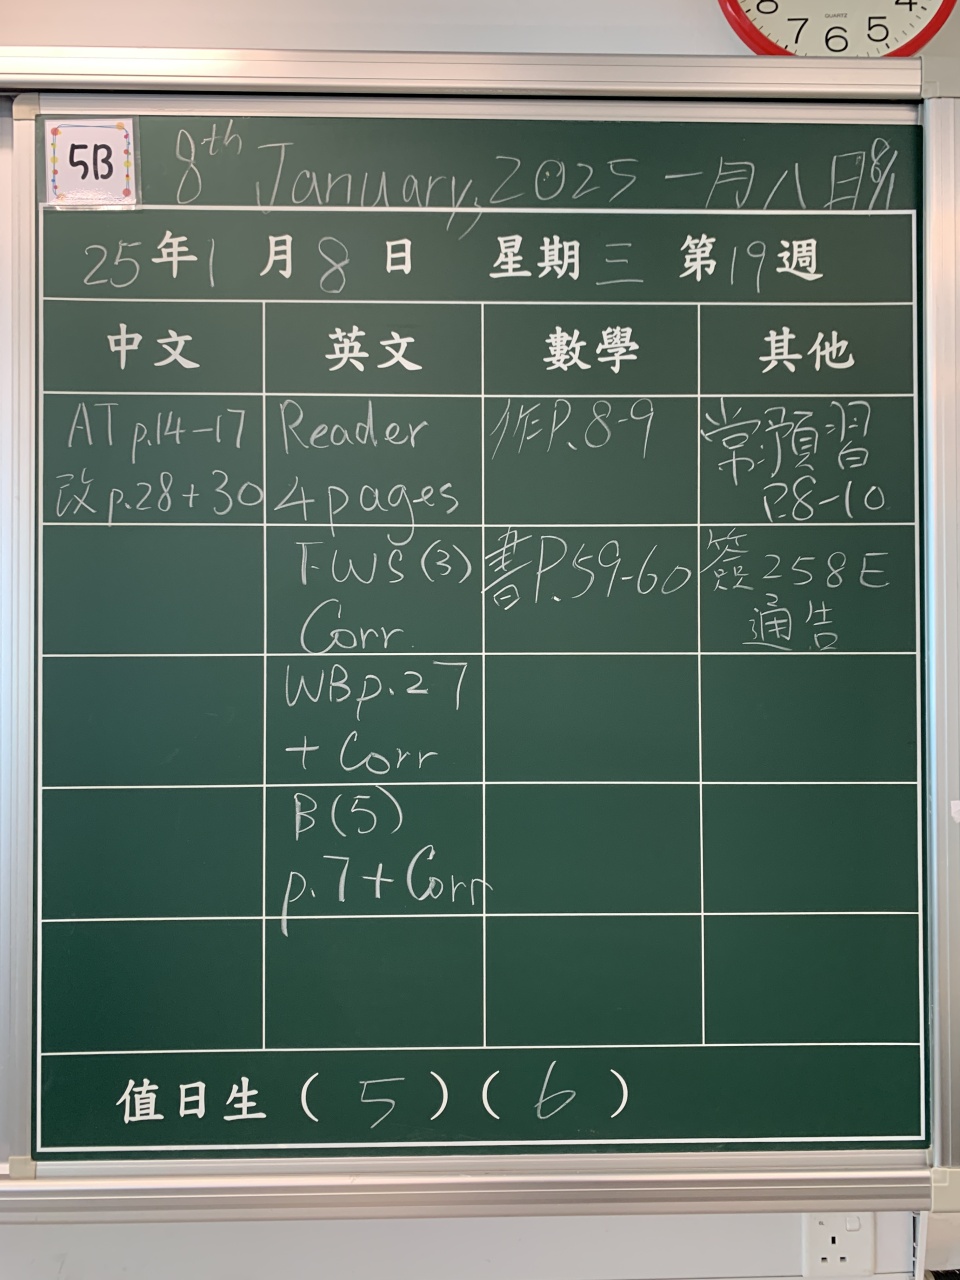 8 7 6 5 4
QUARTZ
5B
8th January, 2025 一月八日 8/1
25年1月8日 星期三 第19週
中文 英文 數學 其他
AT p.14-17
改p.28+30
Reader
4 pages
作P.8-9
常預習
P.8-10
F.WS (3)
Corr.
書P.59-60
簽258E
通告
WB p.27
+ Corr
B(5)
p.7 + Corr
值日生 ( 5 ) ( 6 )